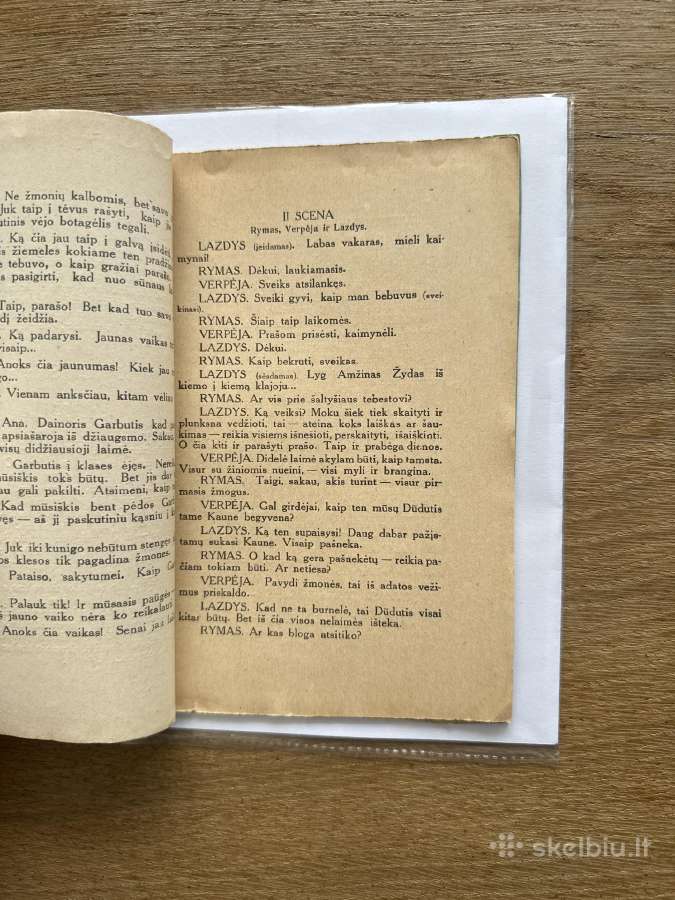 Ne žmonių kalbomis, bet savo
Juk taip į tėvus rašyti, kaip
utinis vėjo botagėlis tegali.
Ką čia jau taip į galvą įsidėj
is žiemelės kokiame ten pradžia
e tebuvo, o kaip gražiai paraše
s pasigirti, kad nuo sūnaus
Taip, parašo! Bet kad tuo savo
dį žeidžia.
Ką padarysi. Jaunas vaikas
visaip...
Anoks čia jaunumas! Kiek jau
go...
Vienam anksčiau, kitam vėliau
Ana. Dainoris Garbutis kad
apsiašaroja iš džiaugsmo. Sakau
visų didžiausioji laimė.
Garbutis į klases ėjęs.
mūsiškis toks būtų. Bet jis dar
au gali pakilti. Atsimeni, kaip
Kad mūsiškis bent pėdos
vęs — aš jį paskutiniu kąsniu
Juk iki kunigo nebūtum stengęs
os klesos tik pagadina žmones.
Pataiso, sakytumei. Kaip
Palauk tik! Ir mūsasis paūgės
š jauno vaiko nėra ko reikalauti
Anoks čia vaikas! Senai jau
II SCENA
Rymas, Verpėja ir Lazdys.
LAZDYS (įeidamas). Labas vakaras, mieli kai-
mynai!
RYMAS. Dėkui, laukiamasis.
VERPĖJA. Sveiks atsilankęs.
LAZDYS. Sveiki gyvi, kaip man bebuvus (svei-
kinasi).
RYMAS. Šiaip taip laikomės.
VERPĖJA. Prašom prisėsti, kaimynėli.
LAZDYS. Dėkui.
RYMAS. Kaip bekruti, sveikas.
LAZDYS (sėsdamas). Lyg Amžinas Žydas iš
kiemo į kiemą klajoju...
RYMAS. Ar vis prie šaltyšiaus tebestovi?
LAZDYS. Ką veiksi? Moku šiek tiek skaityti ir
plunksna vedžioti, tai — ateina koks laiškas ar šau-
kimas — reikia visiems išnešioti, perskaityti, išaiškinti.
O čia kiti ir parašyti prašo. Taip ir prabėga dienos.
VERPĖJA. Didelė laimė akylam būti, kaip tamsta.
Visur su žiniomis nueini, — visi myli ir brangina.
RYMAS. Taigi, sakau, akis turint — visur pir-
masis žmogus.
VERPĖJA. Gal girdėjai, kaip ten mūsų Dūdutis
tame Kaune begyvena?
LAZDYS. Ką ten supaisysi! Daug dabar pažįs-
tamų sukasi Kaune. Visaip pašneka.
RYMAS. O kad ką gera pašnekėtų — reikia
pačiam tokiam būti. Ar netiesa?
VERPĖJA. Pavydi žmonės, tai iš adatos veži-
mus priskaldo.
LAZDYS. Kad ne ta burnelė, tai Dūdutis visai
kitar būtų. Bet iš čia visos nelaimės išteka.
RYMAS. Ar kas bloga atsitiko?
skelbiu.lt